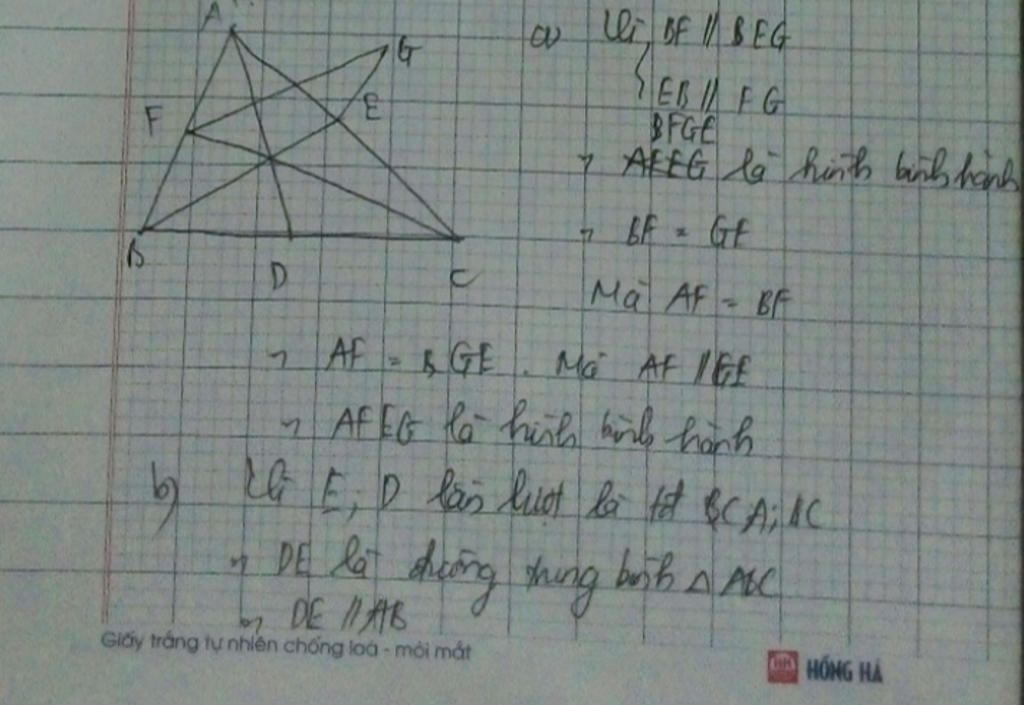 A
G
F
E
B
D
C
a) Vì BF // BEG
EB // FG
BFGE
AFEG là hình bình hành
BF = GE
Mà AF = BF
AF = GE . Mà AF // GE
AFEG là hình bình hành
b) Vì E, D lần lượt là tđ CA; BC
DE là đường trung bình △ ABC
DE // AB
Giấy trắng tự nhiên chống loá - mỏi mắt
HH HỒNG HÀ